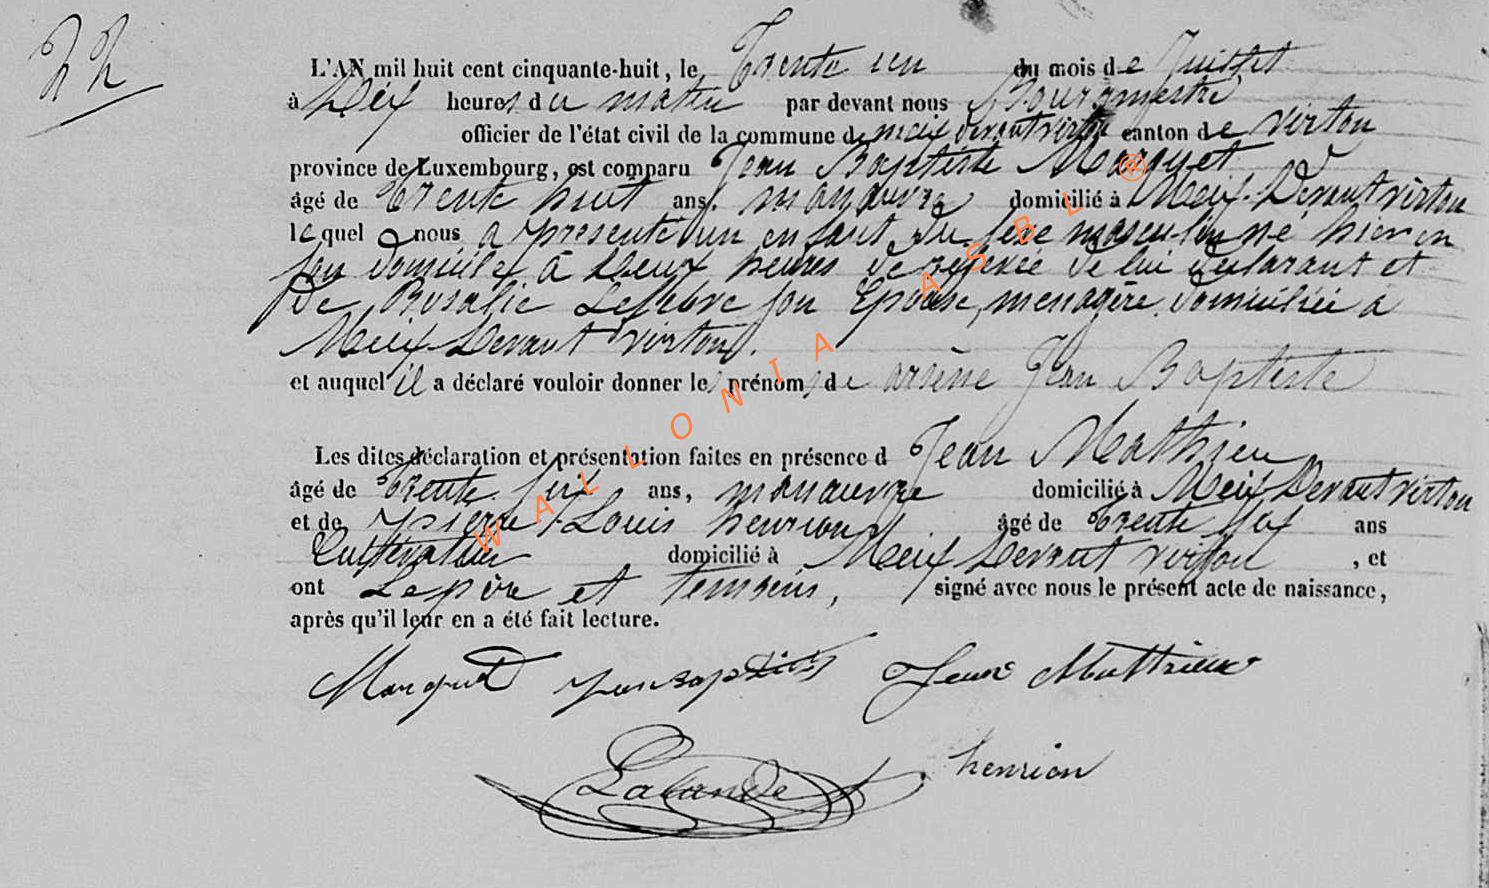 22
L'AN mil huit cent cinquante-huit, le Trente un du mois de Juillet
à Dix heures du matin par devant nous Bourgmestre
officier de l'état civil de la commune de meix devant virton canton de virton
province de Luxembourg, est comparu Jean Baptiste Marquet
âgé de Trente huit ans, manœuvre domicilié à Meix-Devant virton
lequel nous a présenté un enfant du sexe masculin né hier en
son domicile à Deux heures de relevée de lui déclarant et
De Rosalie Lefebvre son Epouse, menagère domiciliée à
Meix-Devant virton.
et auquel il a déclaré vouloir donner les prénoms de arsène Jean Baptiste
Les dites déclaration et présentation faites en présence d Jean Mathieu
âgé de Trente six ans, manœuvre domicilié à Meix Devant virton
et de pierre Louis henrion âgé de Trente ans
Cultivateur domicilié à Meix Devant virton, et
ont Le père et temoins, signé avec nous le présent acte de naissance,
après qu'il leur en a été fait lecture.
Marquet Jean Baptiste Jean Mathieu
Lalande henrion
WALLONIA ASBL ®